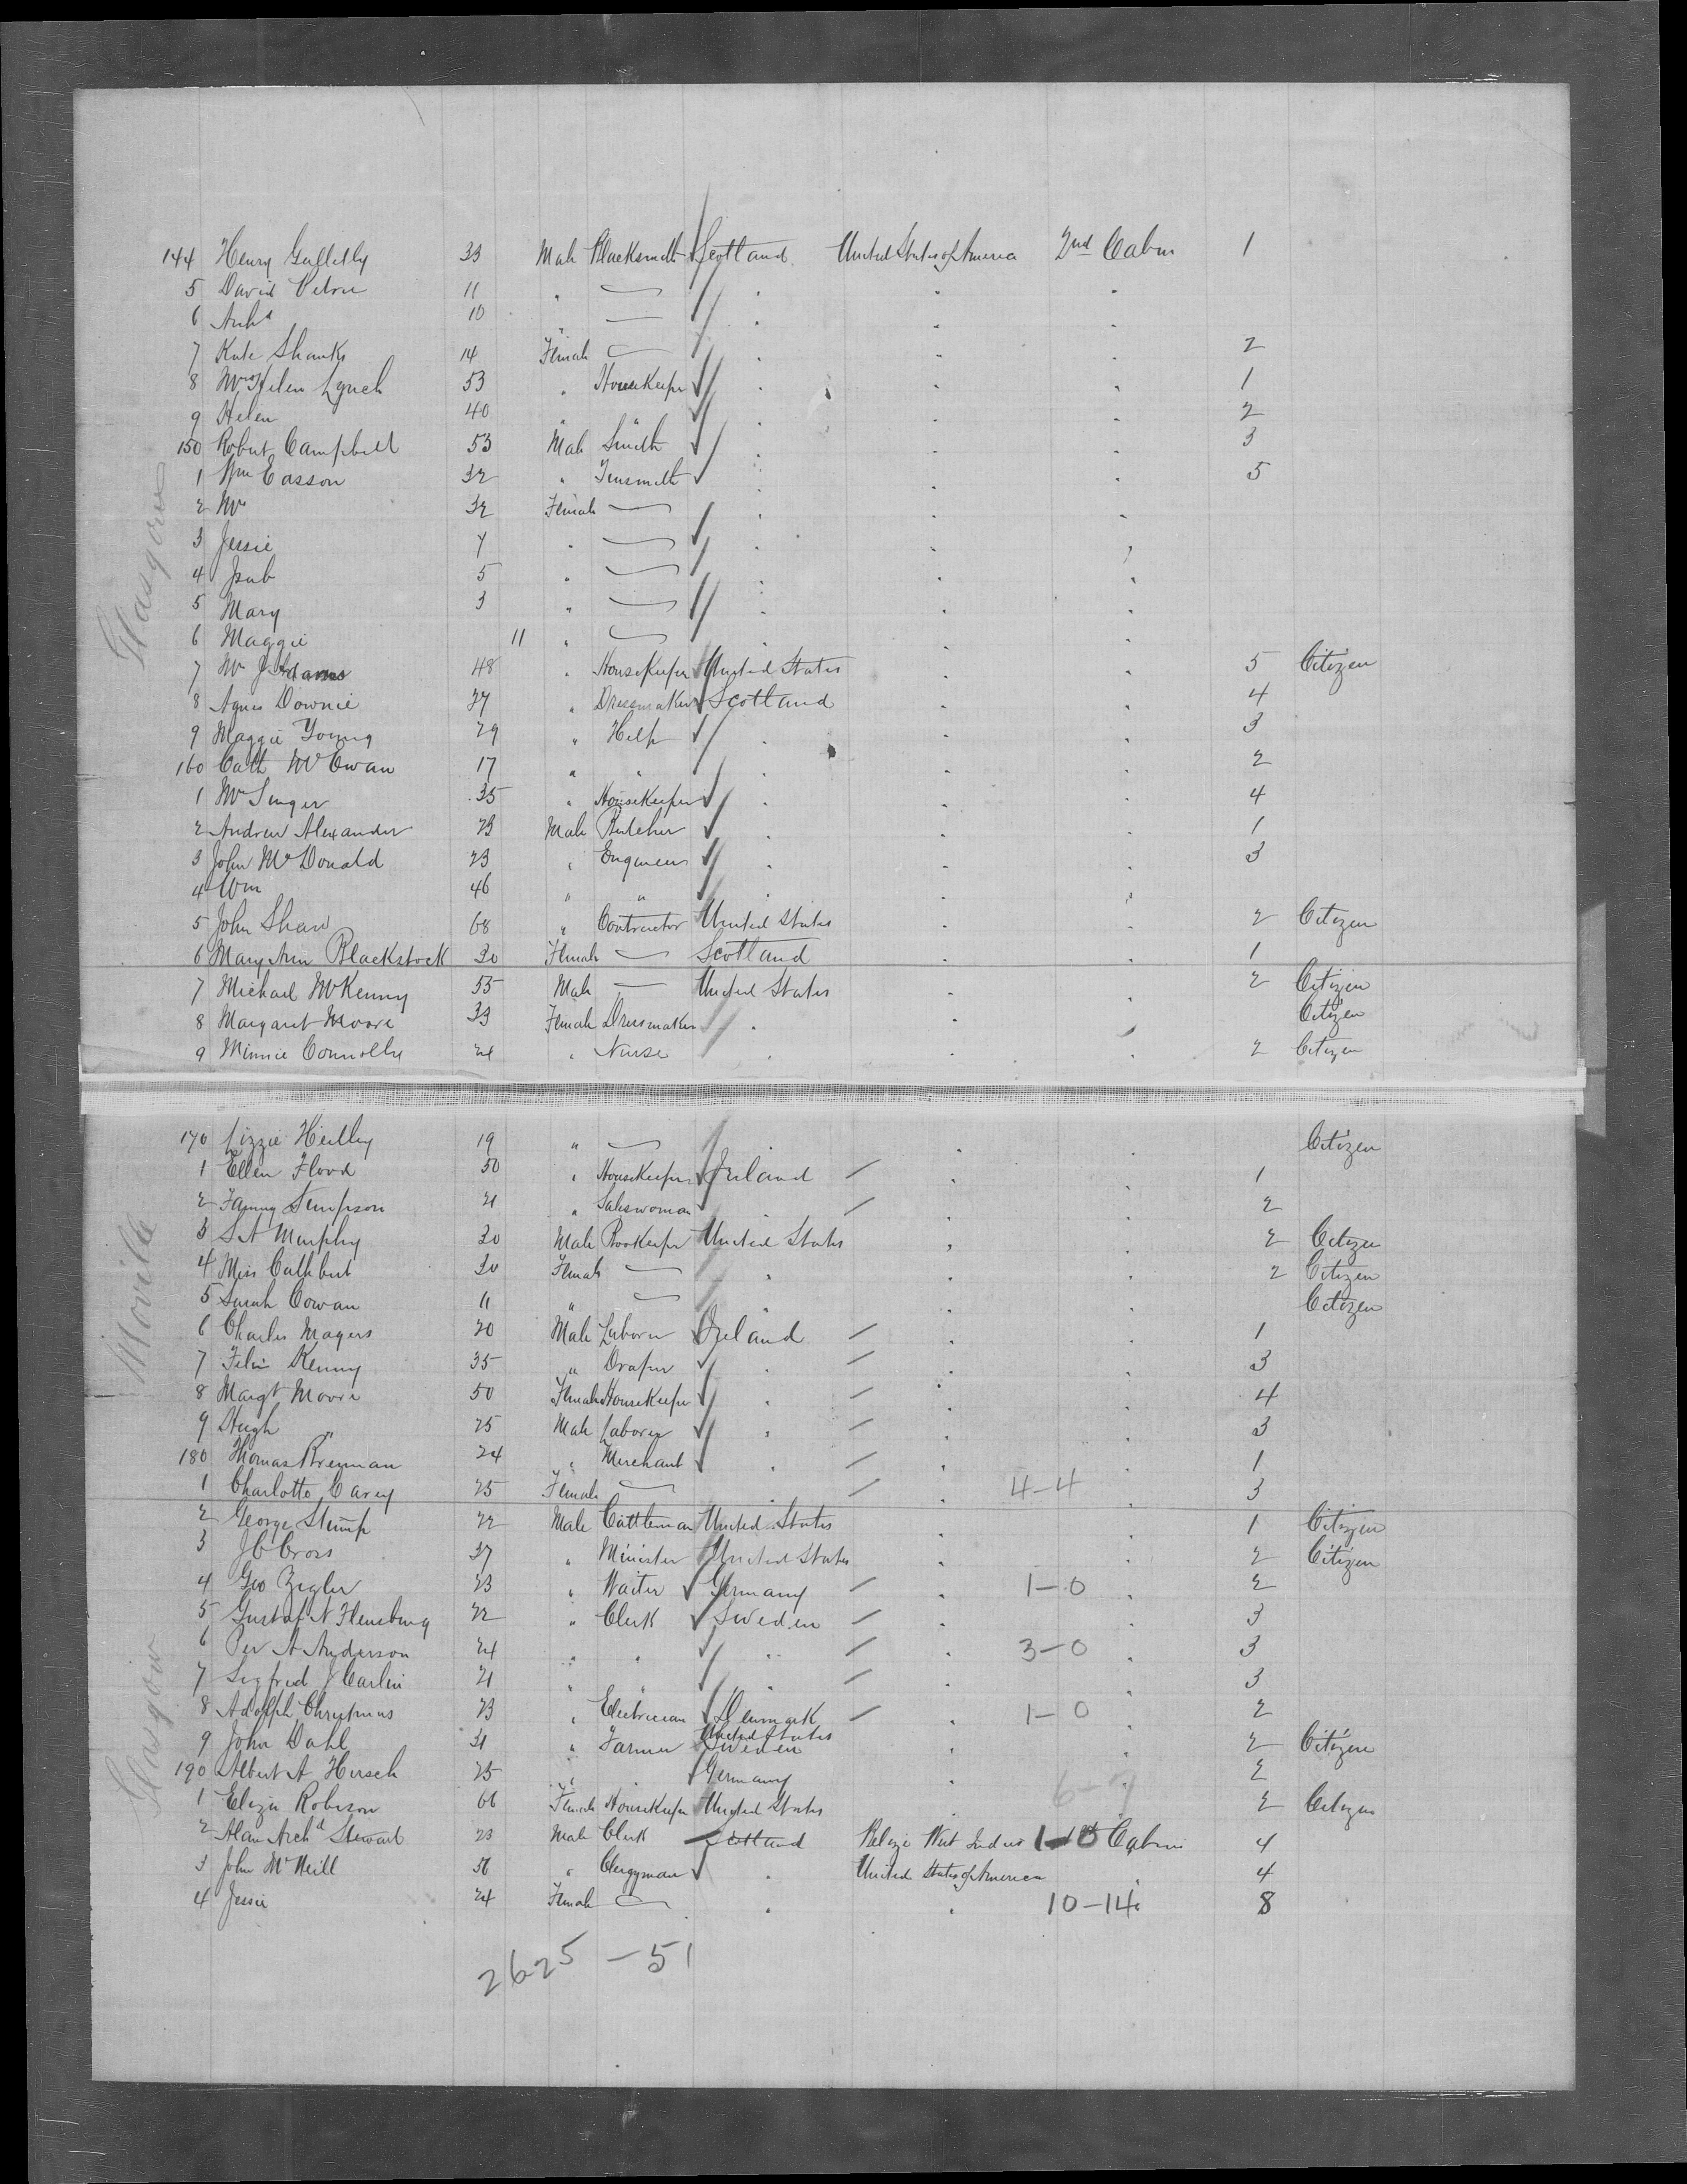 144 Henry Gulletly 33 Male Blacksmith Scotland United States of America 2nd Cabin 1
5 David Petrie 11 " —
6 Archd 10 " —
7 Kate Shanks 14 Female — 2
8 Mrs Helen Lynch 53 " Housekeeper 1
9 Helen 40 " " 2
150 Robert Campbell 53 Male Smith 3
1 Wm Easson 32 " Tinsmith 5
2 Mrs 32 Female —
3 Jessie 7 " —
4 Isab 5 " —
5 Mary 3 " —
6 Maggie 11 " —
7 Mrs J Adams 48 " Housekeeper United States 5 Citizen
8 Agnes Downie 27 " Dressmaker Scotland 4
9 Maggie Young 29 " Help 3
160 Cath McEwan 17 " " 2
1 Mrs Singer 35 " Housekeeper 4
2 Andrew Alexander 23 Male Butcher 1
3 John McDonald 23 " Engineer 3
4 Wm 46 " "
5 John Shaw 68 " Contractor United States 2 Citizen
6 Mary Ann Blackstock 30 Female — Scotland 1
Glasgow
7 Michael McKenny 55 Male — United States 2 Citizen
8 Margaret Moore 33 Female Dressmaker " Citizen
9 Minnie Connolly 24 " Nurse " 2 Citizen
170 Lizzie Heilly 19 " — " Citizen
1 Ellen Flood 50 " Housekeeper Ireland 1
2 Fanny Simpson 21 " Saleswoman " 2
3 S A Murphy 30 Male Bookeeper United States 2 Citizen
4 Miss Cathbert 30 Female — " 2 Citizen
5 Sarah Cowan 11 " — " Citizen
6 Charles Magers 20 Male Laborer Ireland 1
7 Felix Kenny 35 " Draper " 3
8 Margt Moore 50 Female Housekeeper " 4
9 Hugh " 25 Male Laborer " 3
180 Thomas Brennan 24 " Merchant " 1
1 Charlotte Carey 25 Female — " 4-4 3
Moville
2 George Stump 22 Male Cattleman United States 1 Citizen
3 J C Cross 37 " Minister United States 2 Citizen
4 Geo Zegler 23 " Waiter Germany 1-0 2
5 Gustaf N Flensburg 22 " Clerk Sweden 3
6 Per A Anderson 24 " " " 3-0 3
7 Sigfred J Carlin 21 " " " 3
8 Adolph Christmas 23 " Electrician Denmark 1-0 2
9 John Dahl 31 " Farmer United States Sweden 2 Citizen
190 Albert A Hirsch 25 " " Germany 6-7 2
1 Eliza Robison 66 Female Housekeeper United States 2 Citizen
2 Alan Archd Stewart 23 Male Clerk Scotland Belize West Indies 1-0 Cabin 4
3 John McNeill 36 " Clergyman " United States of America 4
4 Jessie 24 Female — " " 10-14 8
Glasgow
2625 - 51